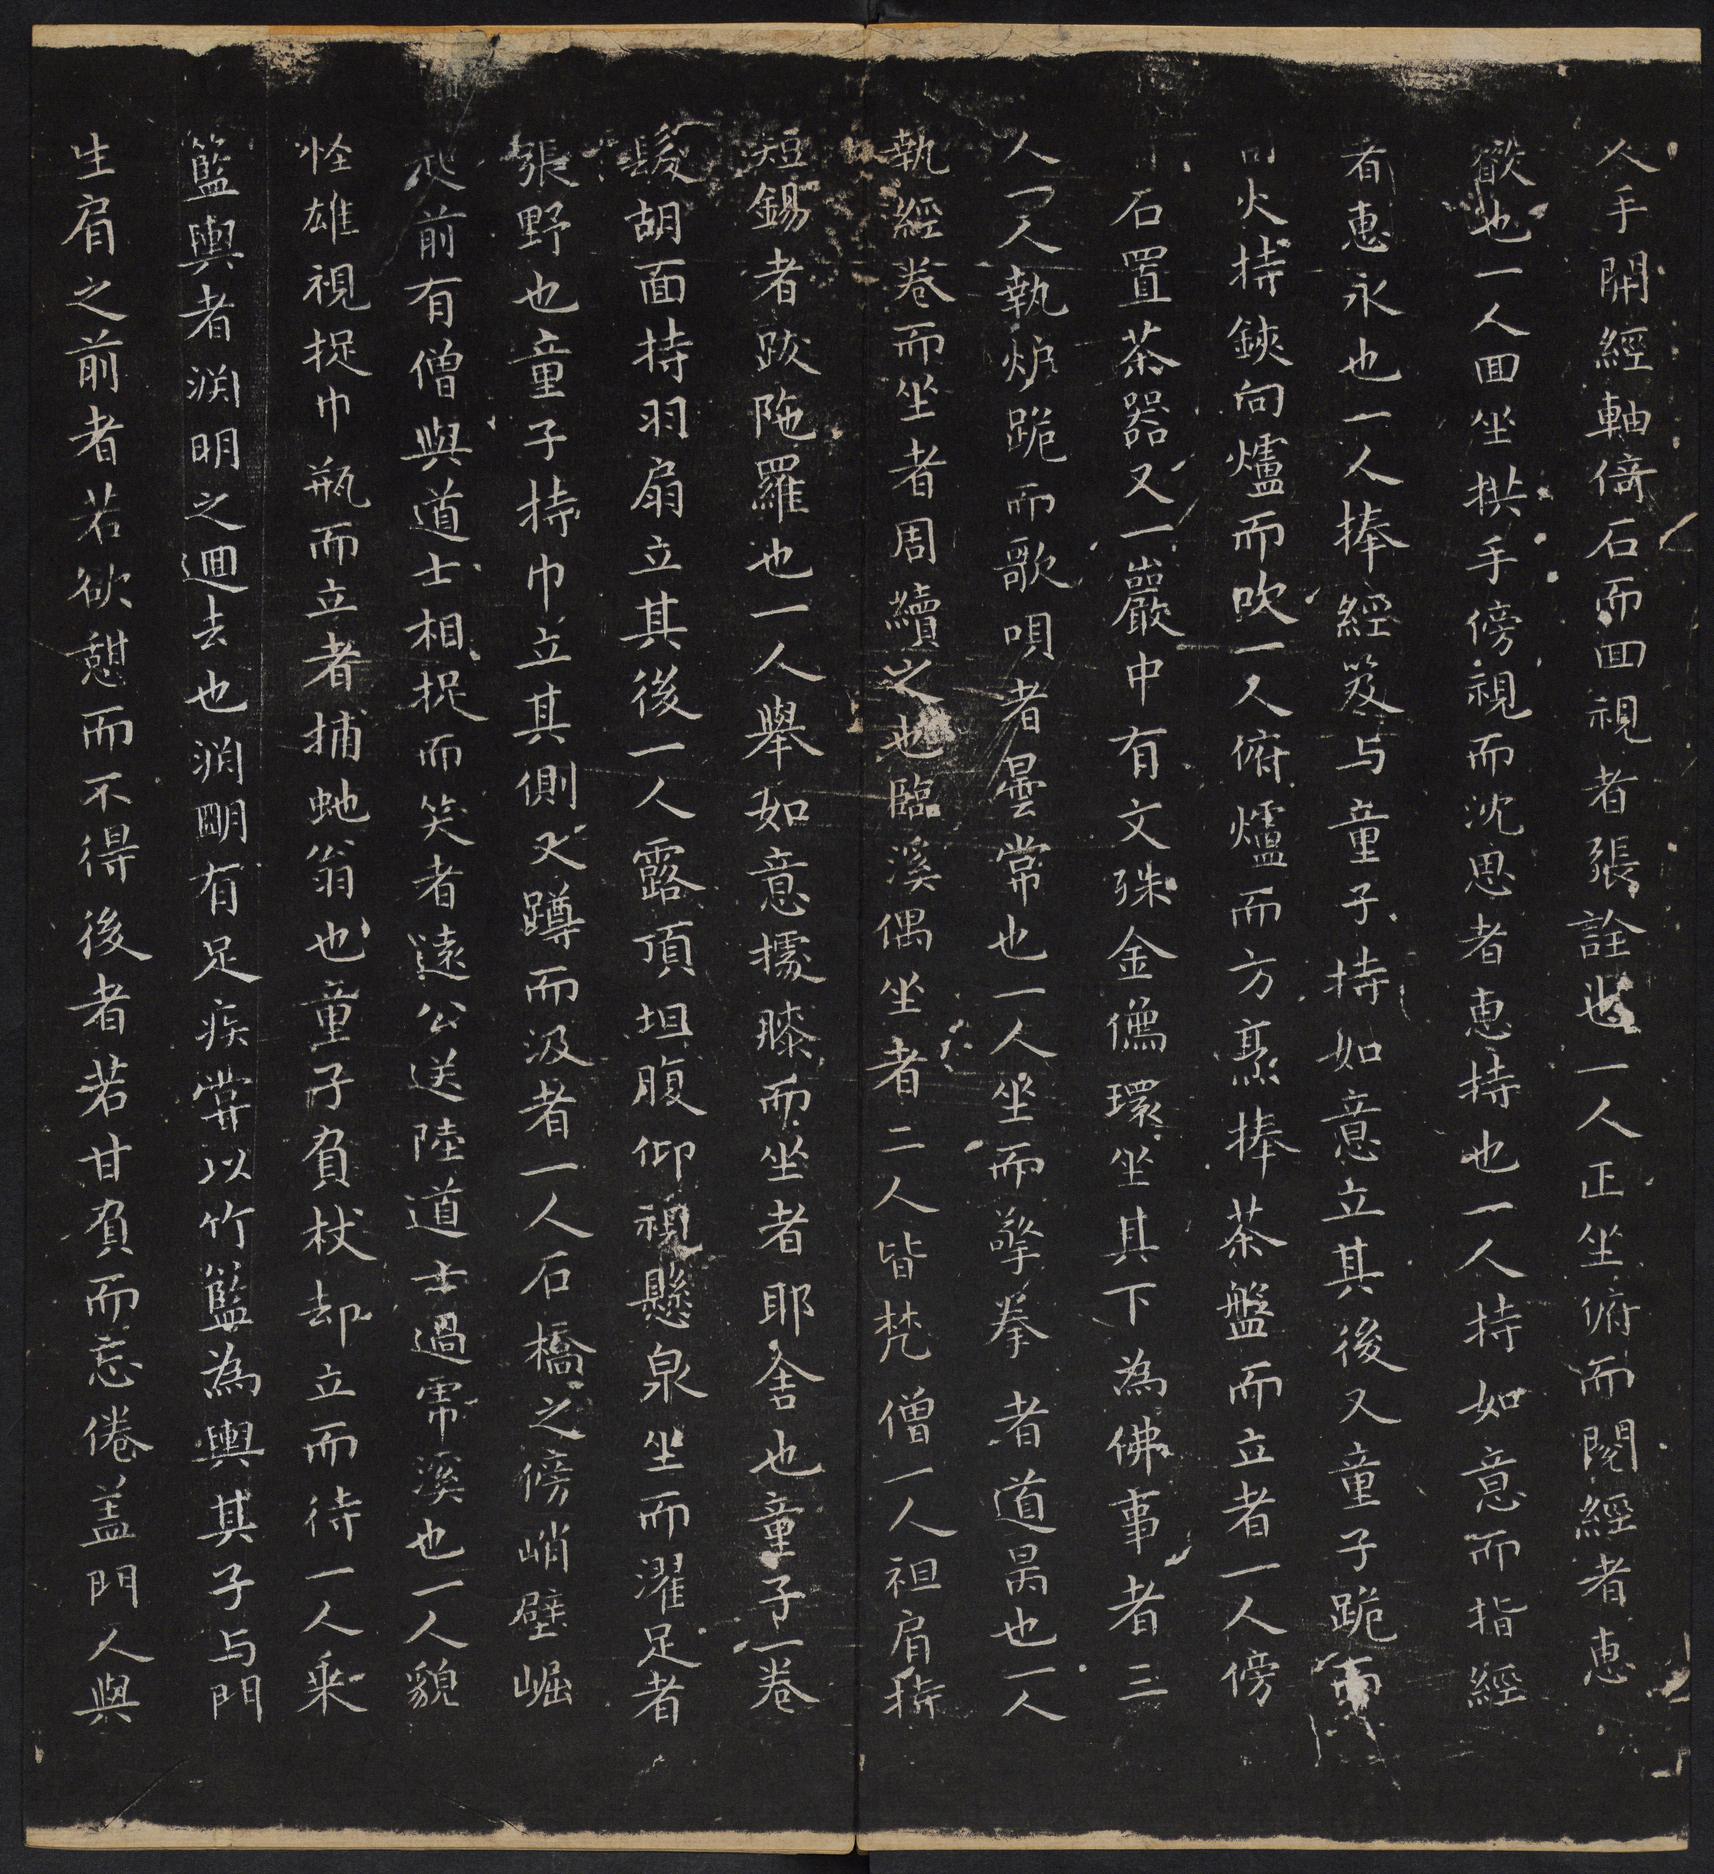 人手開經軸倚石而回視者張詮也一人正坐俯而閱經者惠
叡也一人回坐拱手傍視而沈思者惠持也一人持如意而指經
者惠永也一人捧經笈与童子持如意立其後又童子跪而
司火持鋏向爐而吹一人俯爐而方烹捧茶盤而立者一人傍
石置茶器又一巖中有文殊金僊環坐其下為佛事者三
人一人執炉跪而歌唄者曇常也一人坐而擎拳者道昺也一人
執經卷而坐者周續之也臨溪偶坐者二人皆梵僧一人袒肩持
短錫者跋陁羅也一人舉如意據膝而坐者耶舍也童子一卷
髮胡面持羽扇立其後一人露頂坦腹仰視懸泉坐而濯足者
張野也童子持巾立其側又蹲而汲者一人石橋之傍峭壁崛
起前有僧與道士相捉而笑者遠公送陸道士過虎溪也一人貌
怪雄視捉巾瓶而立者捕虵翁也童子負杖却立而待一人乘
籃輿者渊明之迴去也渊明有足疾嘗以竹籃為輿其子与門
生肩之前者若欲憇而不得後者若甘負而忘倦盖門人與